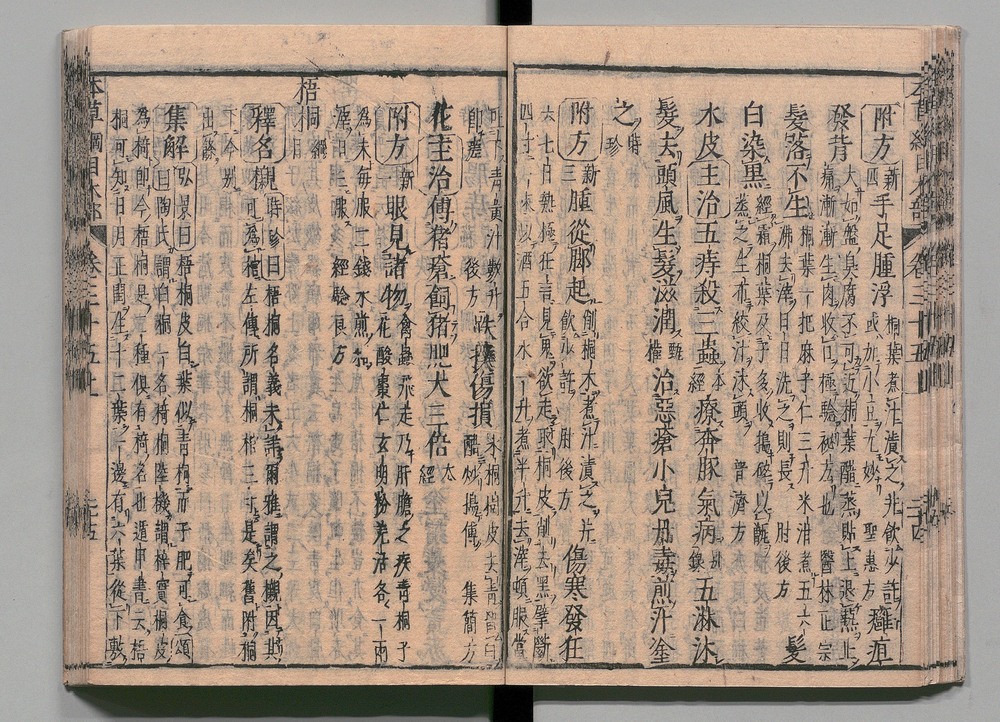 附方 新四 手足腫浮 桐葉煮汁漬之并飲少許或加小豆尤妙 聖惠方 癰疽
發背 大如盤臭腐不可近桐葉醋蒸貼上退熱止痛漸漸生肉收口極驗秘方也 醫林正宗
髮落不生 桐葉一把麻子仁三升米泔煮五六沸去滓日日洗之則長 肘後方 髮
白染黑 經霜桐葉及子多收搗碎以甑蒸之生布絞汁沐頭 普濟方
木皮主治五痔殺三蟲 本經 療奔豚氣病 別錄 五淋沐
髮去頭風生髮滋潤 甄權 治惡瘡小兒丹毒煎汁塗
之 時珍
附方 新三 腫從脚起 削桐木煮汁漬之并飲少許 肘後方 傷寒發狂
六七日熱極狂言見鬼欲走取桐皮削去黑擘斷
四寸一束以酒五合水一升煮半升去滓頓服當
吐下青黃汁數升即瘥 肘後方 跌撲傷損 水桐樹皮去青留白醋炒搗傅 集簡方
花主治傅猪瘡飼猪肥大三倍 本經
附方 新一 眼見諸物 禽蟲飛走乃肝膽之疾青桐子花酸棗仁玄明粉羌活各一兩
為末每服二錢水煎和
滓日三服 經驗良方
梧桐 綱目
釋名 櫬 時珍曰梧桐名義未詳爾雅謂之櫬因其
可為棺左傳所謂桐棺三寸是矣舊附桐
下今別
出條
集解 弘景曰梧桐皮白葉似青桐而子肥可食頌
曰陶氏謂白桐一名椅桐陸機謂梓實桐皮
為椅即今梧桐是二種俱有椅名也遁甲書云梧
桐可知日月正閏生十二葉一邊有六葉從下數
本草綱目木部 卷三十五上